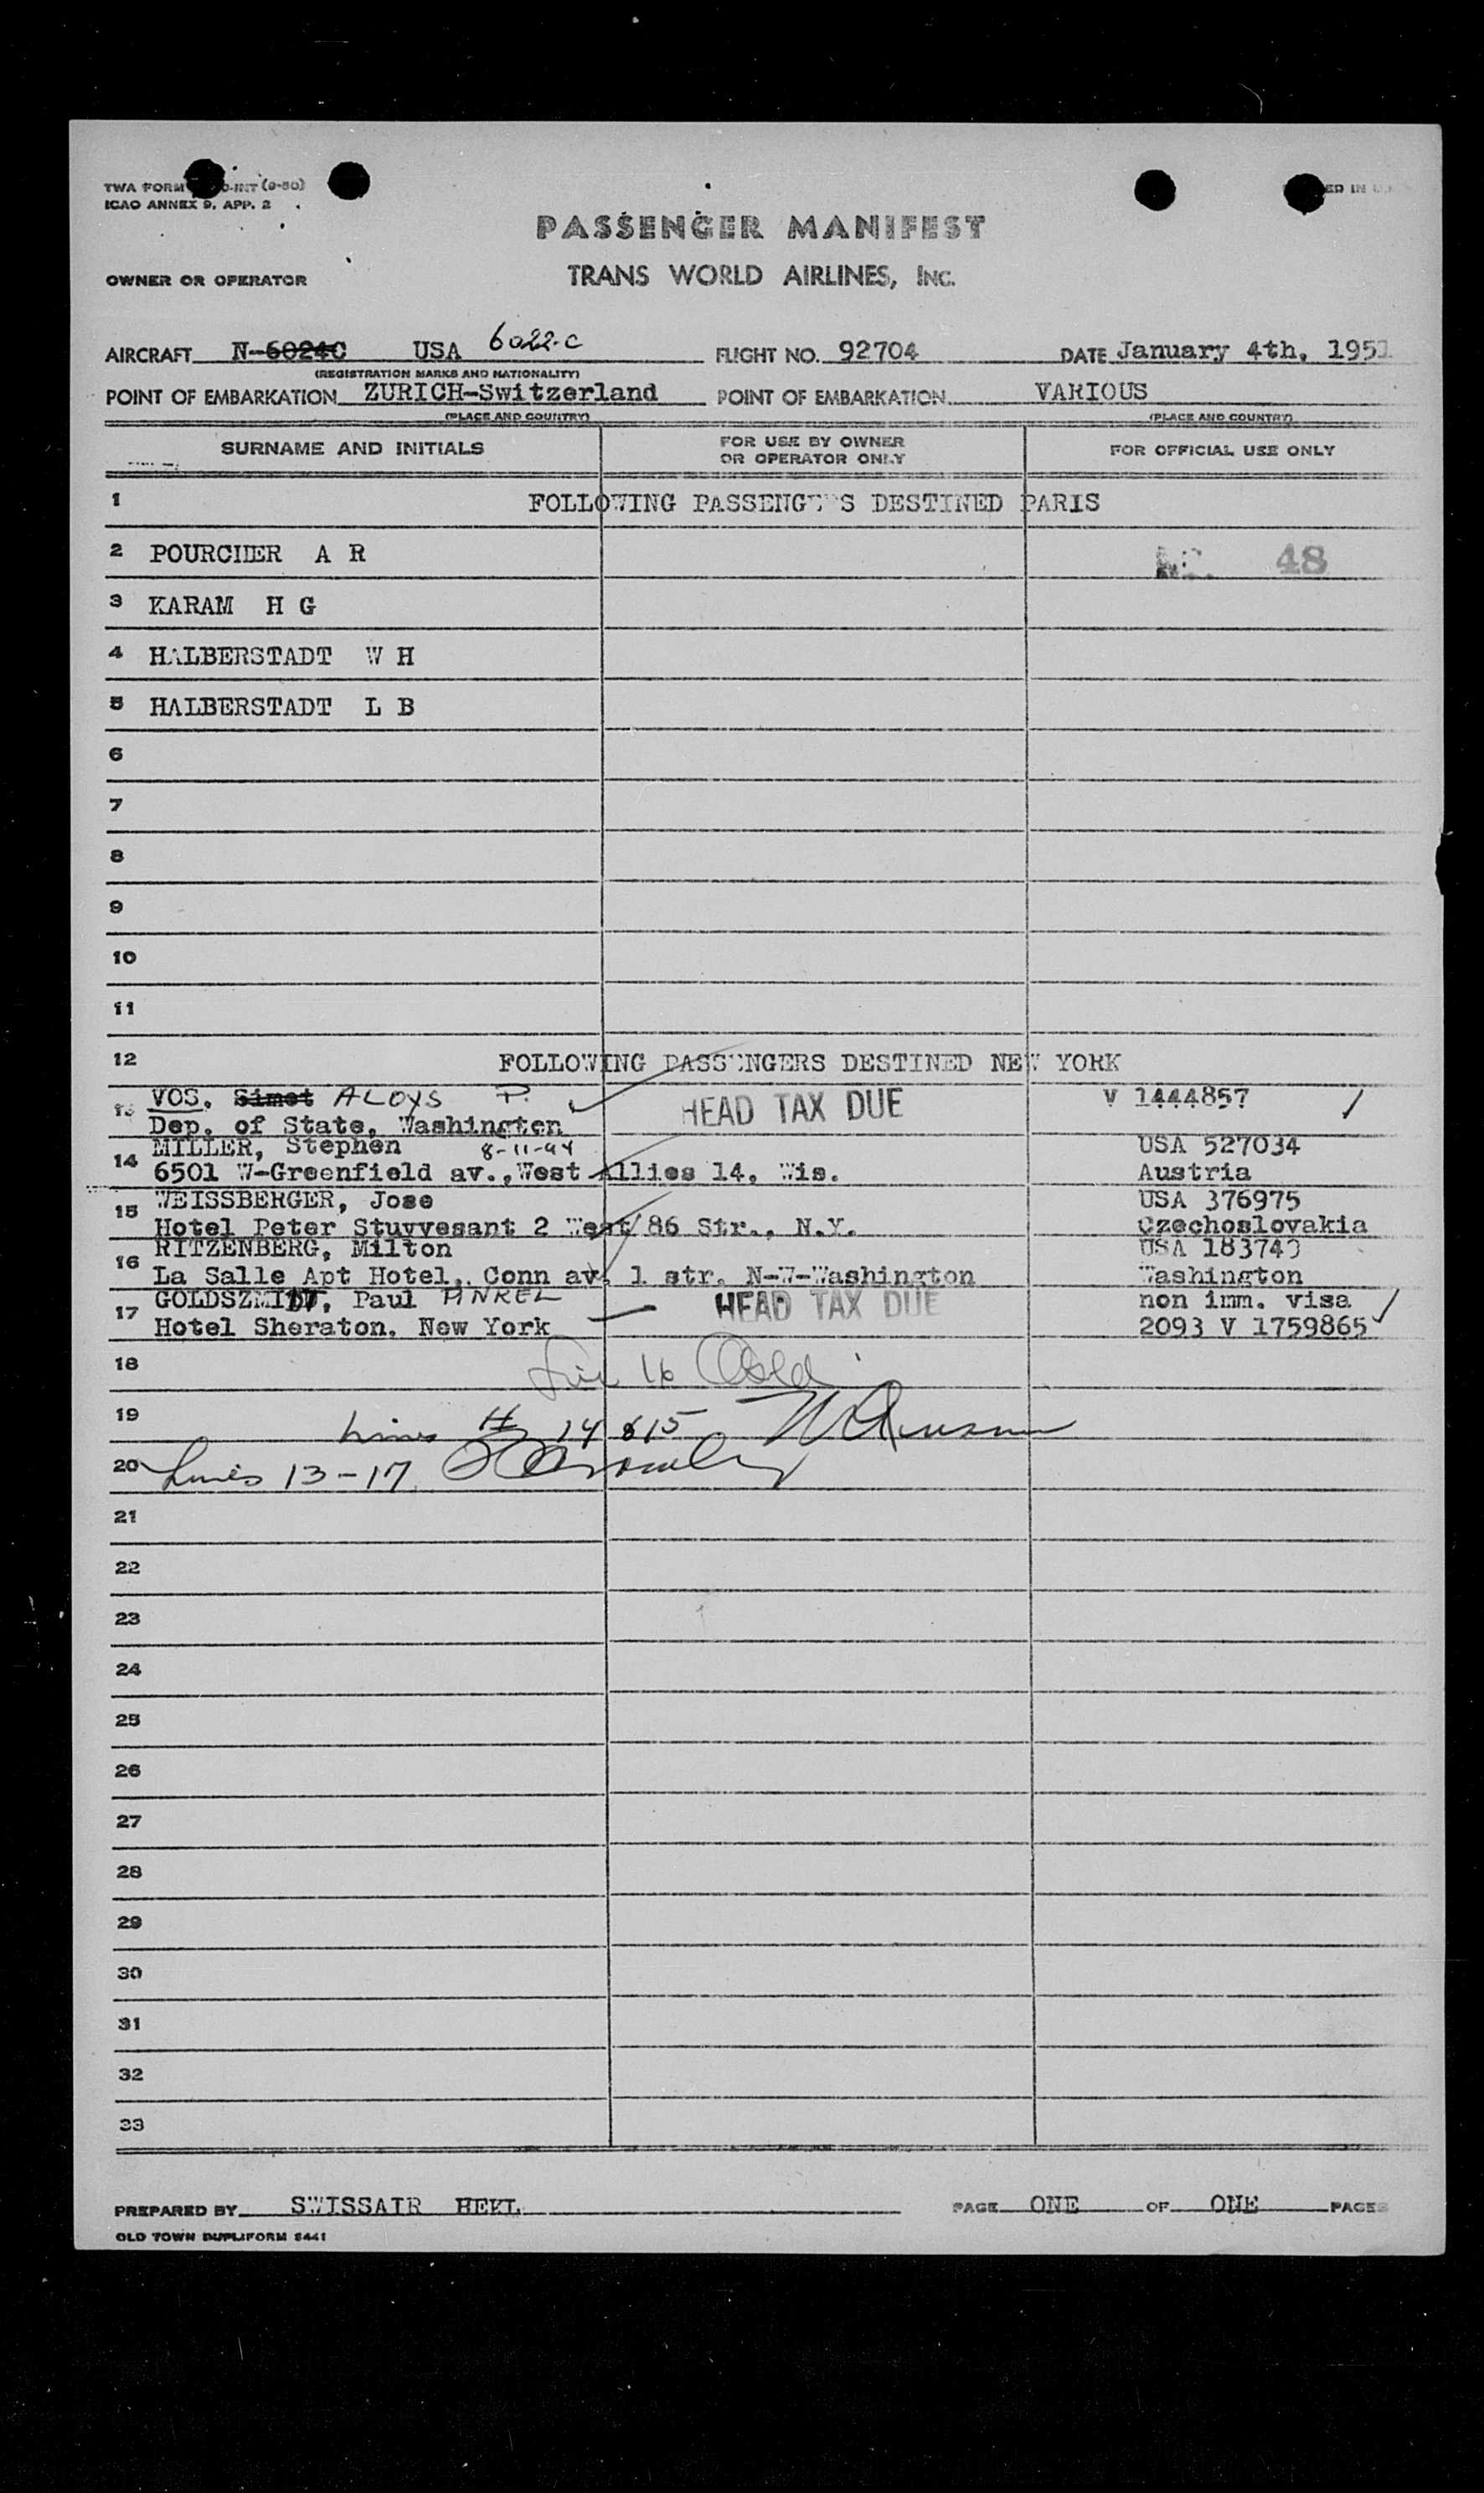 TWA FORM O-INT (9-50)
ICAO ANNEX 9, APP. 2
PASSENGER MANIFEST
OWNER OR OPERATOR
TRANS WORLD AIRLINES, INC.
AIRCRAFT N-6024C USA 6022-C FLIGHT NO. 92704 DATE January 4th, 1951
(REGISTRATION MARKS AND NATIONALITY)
POINT OF EMBARKATION ZURICH-Switzerland POINT OF EMBARKATION VARIOUS
(PLACE AND COUNTRY) (PLACE AND COUNTRY)
SURNAME AND INITIALS FOR USE BY OWNER OR OPERATOR ONLY FOR OFFICIAL USE ONLY
1 FOLLOWING PASSENGERS DESTINED PARIS
2 POURCHER A R 48
3 KARAM H G
4 HALBERSTADT W H
5 HALBERSTADT L B
6
7
8
9
10
11
12 FOLLOWING PASSENGERS DESTINED NEW YORK
13 VOS, Simet ALOYS P. HEAD TAX DUE V 1444857
Dep. of State, Washington
14 MILLER, Stephen 8-11-94 USA 527034
6501 W-Greenfield av., West Allies 14, Wis. Austria
15 WEISSBERGER, Jose USA 376975
Hotel Peter Stuyvesant 2 West 86 Str., N.Y. Czechoslovakia
16 RITZENBERG, Milton USA 183740
La Salle Apt Hotel, Conn av. l str. N-W-Washington Washington
17 GOLDSZMIDT, Paul PINKEL HEAD TAX DUE non imm. visa
Hotel Sheraton, New York 2093 V 1759865
18 Line 16
19 Lines 14 & 15
20 Lines 13-17
21
22
23
24
25
26
27
28
29
30
31
32
33
PREPARED BY SWISSAIR HEKL PAGE ONE OF ONE PAGES
OLD TOWN DUPLIFORM 8441